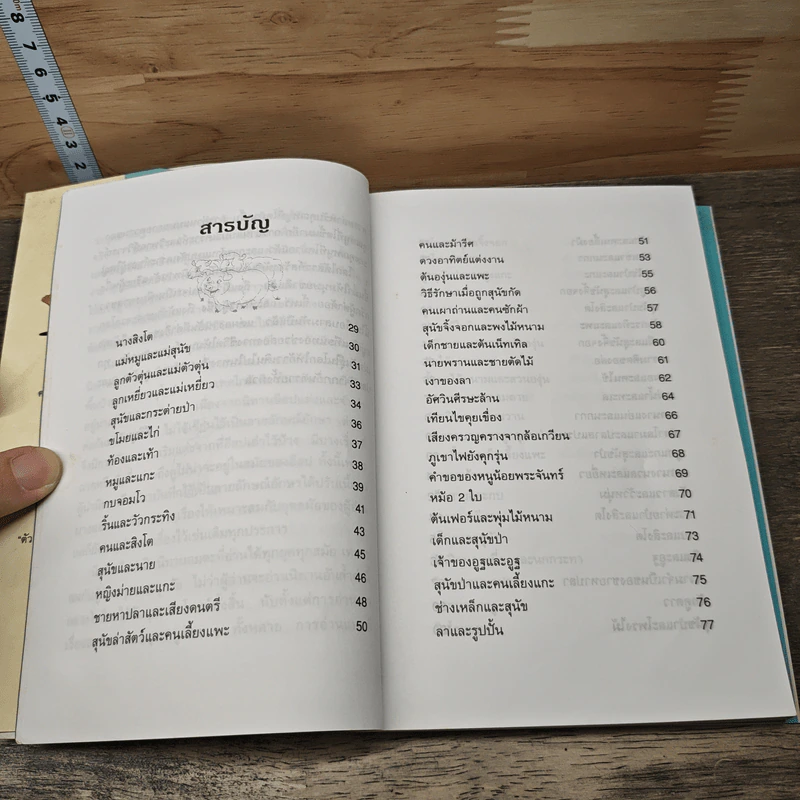 8
7
6
5
4
3
2
สารบัญ
นางสิงโต 29
แม่หมูและแม่สุนัข 30
ลูกตัวตุ่นและแม่ตัวตุ่น 31
ลูกเหยี่ยวและแม่เหยี่ยว 33
สุนัขและกระต่ายป่า 34
ขโมยและไก่ 36
ท้องและเท้า 37
หมูและแกะ 38
กบจอมโว 39
ริ้นและวัวกระทิง 41
คนและสิงโต 43
สุนัขและนาย 45
หญิงม่ายและแกะ 46
ชายหาปลาและเสียงดนตรี 48
สุนัขล่าสัตว์และคนเลี้ยงแพะ 50
คนและม้ารีศ 51
ดวงอาทิตย์แต่งงาน 53
ต้นองุ่นและแพะ 55
วิธีรักษาเมื่อถูกสุนัขกัด 56
คนเผาถ่านและคนซักผ้า 57
สุนัขจิ้งจอกและพงไม้หนาม 58
เด็กชายและต้นเน็ทเทิล 60
นายพรานและชายตัดไม้ 61
เงาของลา 62
อัศวินศีรษะล้าน 64
เทียนไขคุยเขื่อง 66
เสียงครวญครางจากล้อเกวียน 67
ภูเขาไฟยังคุกรุ่น 68
คำขอของหนูน้อยพระจันทร์ 69
หม้อ 2 ใบ 70
ต้นเฟอร์และพุ่มไม้หนาม 71
เด็กและสุนัขป่า 73
เจ้าของอูฐและอูฐ 74
สุนัขป่าและคนเลี้ยงแกะ 75
ช่างเหล็กและสุนัข 76
ลาและรูปปั้น 77
"ตัว